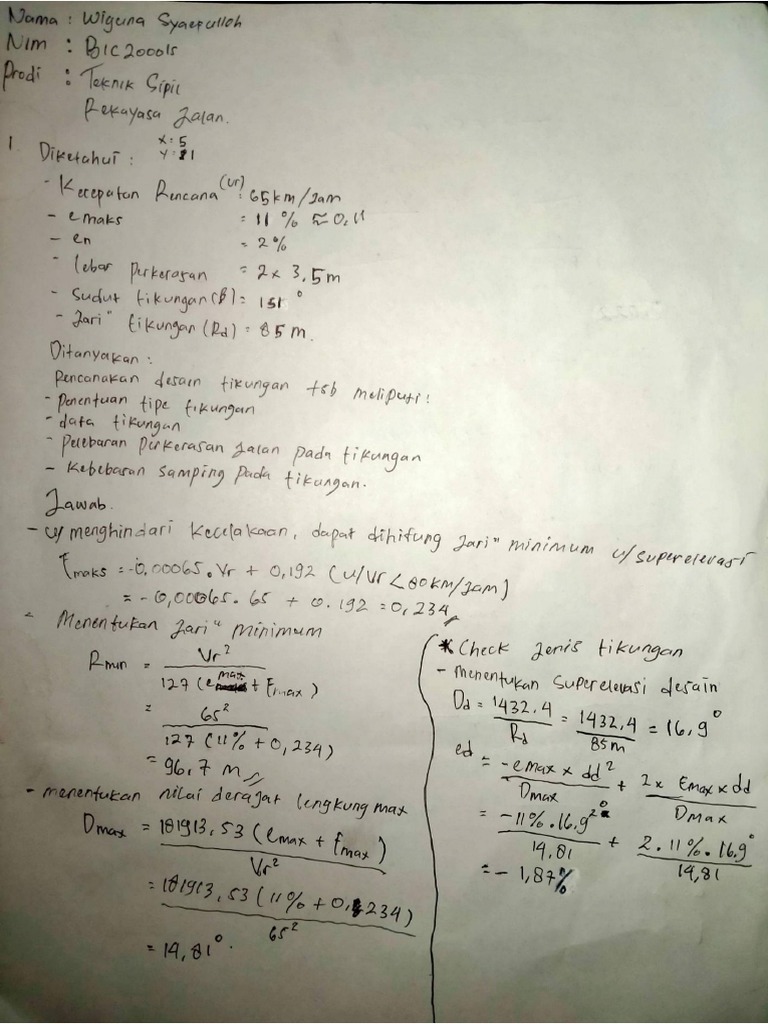 Nama : Wiguna Syaefulloh
Nim : B1C200015
Prodi : Teknik Sipil
Rekayasa Jalan.
1. Diketahui : X: 5
Y: 11
- Kecepatan Rencana (Vr) : 65 km/Jam
- emaks = 11 % ≈ 0,11
- en = 2%
- Lebar perkerasan = 2 x 3,5 m
- Sudut tikungan (β) = 151°
- Jari" tikungan (Rd) = 85 m.
Ditanyakan :
Rencanakan desain tikungan tsb meliputi:
- Penentuan tipe tikungan
- data tikungan
- Pelebaran Perkerasan Jalan pada tikungan
- Kebebaran Samping pada tikungan.
Jawab.
- u/ menghindari kecelakaan, dapat dihitung Jari" minimum u/ superelevasi
Fmaks = -0,00065. Vr + 0,192 (u/ Vr < 80 km/Jam)
= - 0,00065. 65 + 0.192 = 0,234
- Menentukan Jari" minimum
Rmin = Vr² / 127 (e max + Fmax)
= 65² / 127 (11% + 0,234)
= 96,7 m
- menentukan nilai derajat lengkung max
Dmax = 181913,53 (emax + Fmax) / Vr²
= 181913,53 (11% + 0,234) / 65²
= 14,81°.
* Check Jenis tikungan
- Menentukan superelevasi desain
Dd = 1432,4 / Rd = 1432,4 / 85m = 16,9°
ed = -emax x dd² / Dmax + 2 x Emax x dd / Dmax
= -11% . 16,9²° / 14,81 + 2 . 11% . 16,9° / 14,81
= - 1,87%